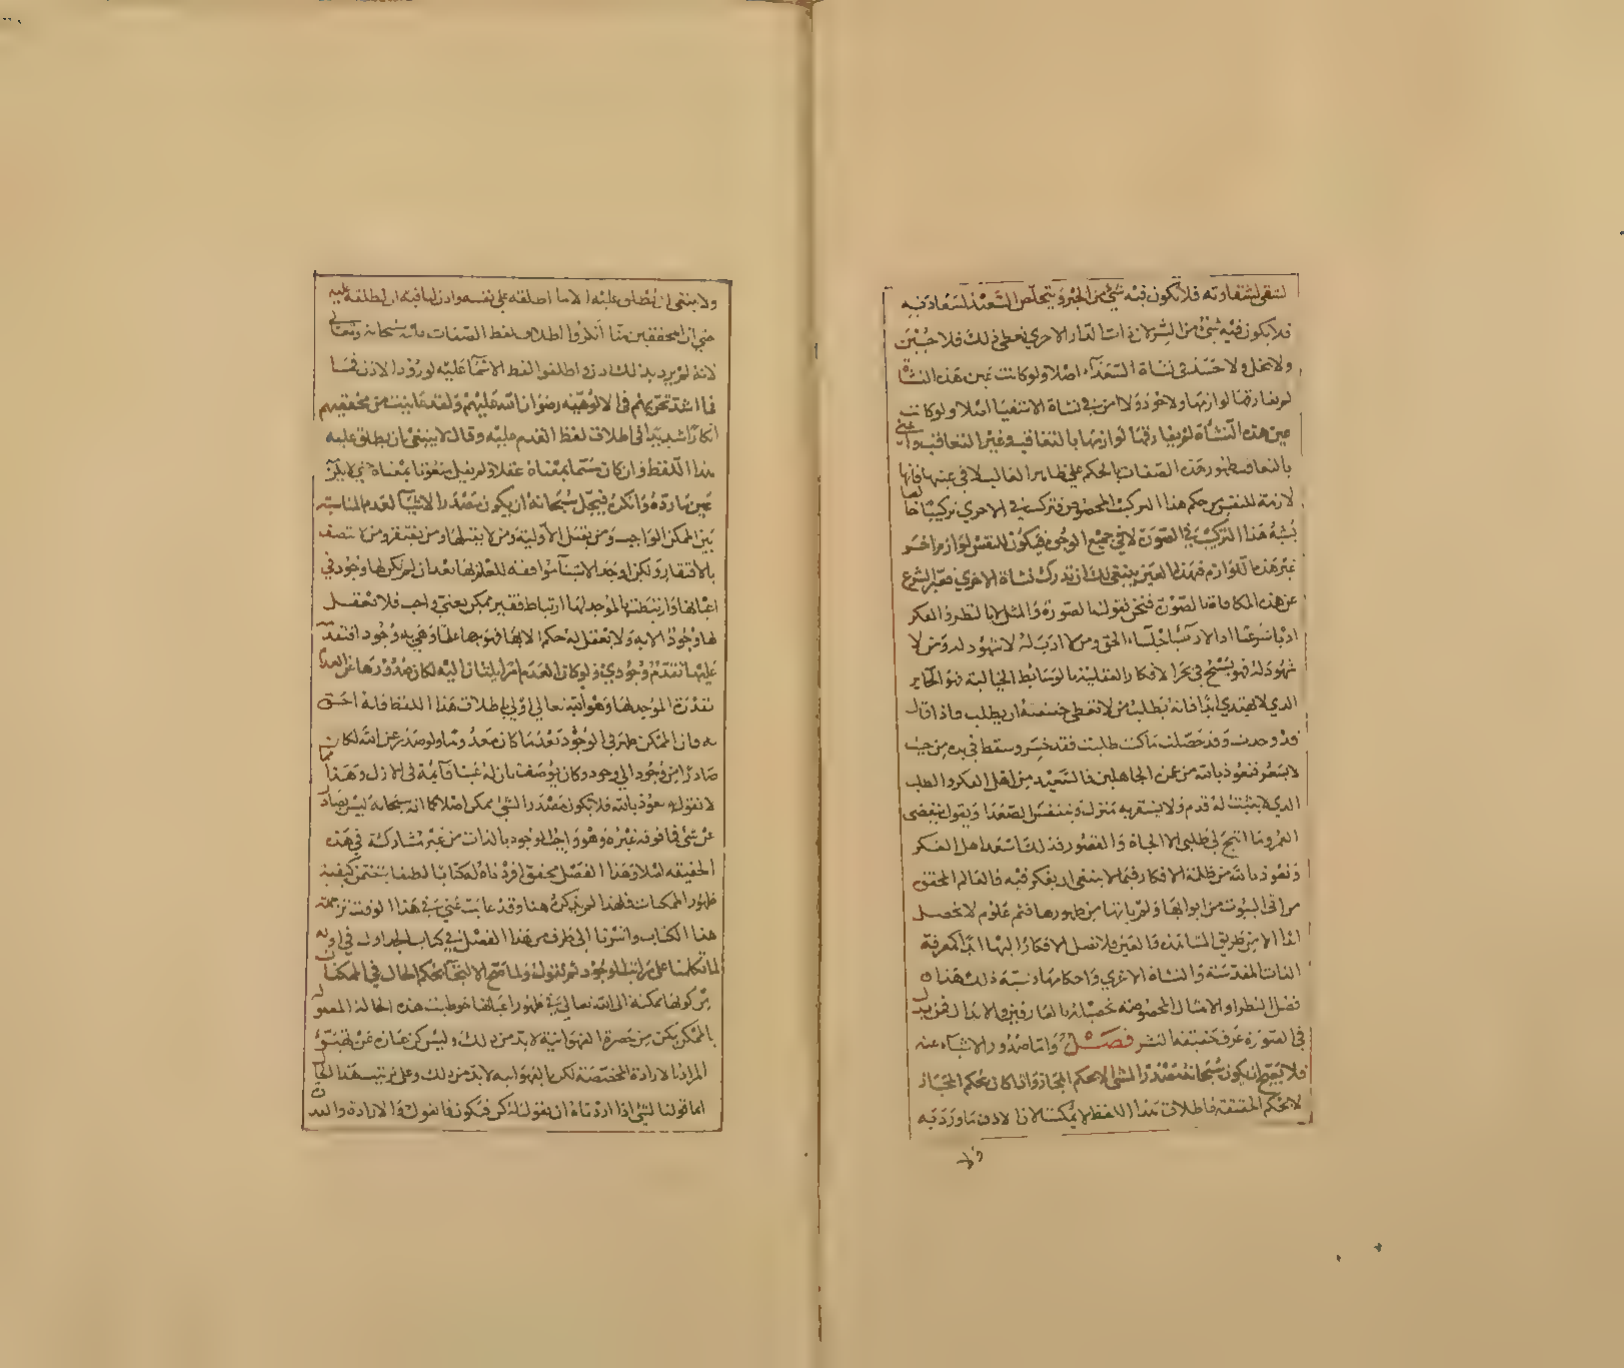 لتنقى لشقاوته فلا يكون فيه شئ من الخير ويتخلص السعيد لسعادته
فلا يكون فيه شئ من الشر لان ذات الدار الاخرى تعطى ذلك فلا جبن
ولا بخل ولا حسد فى نشاة السعداء اصلا ولو كانت عين هذه النشأة
لم يفارقها لوازمها ولا جود ولا امن فى نشاة الاشقيا اصلا ولو كانت
عين هذه النشأة لم يفارقها لوازمها بالتعاقب وغير التعاقب واعنى
بالتعاقب ظهور هذه الصفات بالحكم على ظاهر القالب لا فى عينها فانها
لازمة للنفس من حكم هذا التركيب المخصوص فتركب فى الاخرى تركيبا خاصا
يشبه هذا التركيب فى الصورة لا فى جميع الوجوه فيكون للنفس لوازم اخر
غير هذه اللوازم فبهذا العين ينبغى لك ان تدرك نشاة الاخرى فعبر الشرع
عن هذه المكافاة بالصورة فنحن نقول بالصورة والمثل لا بالنظر والفكر
ادبا شرعيا اذ الادباء جلساء الحق ومن لا ادب له لا شهود له ومن لا
شهود له فهو يسبح فى بحر الافكار العقلية بالوسائط الخيالية فهو الحائر
الذى لا يهتدى ابدا فانه يطلب من لا تعطى حقيقته ان يطلب فاذا قال
قد وجدت وقد حصلت ما كنت طلبت فقد خسر وسقط فى يده من حيث
لا يشعر فنعوذ بالله من عمى الجاهلين فالسعيد من اهل الفكر والطلب
الذى لا يثبت له قدم ولا يستقر به منزل ويتنفس الصعدا ويقول ينقضى
العمر وما انتج لى طلبى الا الحياة والقصور فذلك اسعد اهل الفكر
ونعوذ بالله من ظلمة الافكار فيما لا ينبغى ان يفكر فيه فالعالم المحقق
من اتى البيوت من ابوابها ولم ياتها من ظهورها فثم علوم لا تحصل
ابدا الا من طريق المشاهدة والعين فلا تصل الافكار اليها ابدا كمعرفة
الذات المقدسة والنشاة الاخرى واحكامها ونسبة ذلك هذا
فضل النظر والامثال المخصوصة
فى الصورة عرف حقيقة النشر فصل واما صدور الاشياء عنه
فلا يصح ان يكون سبحانه مصدرا لشئ الا بحكم المجاز واذا كان بحكم المجاز
لا بحكم الحقيقة فاطلاق هذا اللفظ لا يمكننا الا ان لا دون ما ورد به
ولا
ولا ينبغى ان يطلق عليه الا ما اطلقه على نفسه واذن لنا فيه ان نطلقه عليه
حتى ان المحققين منا انكروا اطلاق لفظ الصفات فانه سبحانه وتعالى
لانه لم يرد بذلك اذن واطلقوا لفظ الاسماء عليه لورود الاذن فيها
فما اشد تحريهم فى الالوهية رضوان الله عليهم ولقد عاينت من محققيهم
انكارا شديدا فى اطلاق لفظ القدم عليه وقال لا ينبغى ان يطلق عليه
هذا اللفظ وان كان مسمى بمعناه عقلا ولم يقل بنعوتنا بمعناه حتى لا يكون
عين ما رده وانكره فيجل سبحانه ان يكون مصدر الاشيا لعدم المناسبة
بين الممكن والواجب ومن يقبل الاولية ومن لا يقبلها ومن يفتقر ومن لا يتصف
بالافتقار ولكن اوجد الاشيا موافقة للعلم بها بعد ان لم يكن لها وجود فى
اعيانها وارتبطت بالموجد لها ارتباط فقير ممكن بغنى واجب فلا نعقل
لها وجود الا به ولا نعقل له حكم الا بها فهو جاعلها وهى به وجود افتقد
عليها تقدم وجودى ولو كان العدم امرا يشار اليه لكان صدورها عن العدم
بقدرة الموجد لها وهو الله تعالى اولى باطلاق هذا اللفظ فانه احق
به فان الممكن ظهر فى الوجود بعد ما كان معدوما ولو صدر عن الله لكان
صادرا من وجود الى وجود وكان يوصف بان له عينا قائمة فى الازل وهذا مما
لا نقول به نعوذ بالله فلا يكون مصدر الشئ ممكن اصلا كما انه سبحانه ليس بصادر
عن شئ فما فوقه غيره وهو واجب الوجود بالذات من غير مشاركة فى هذه
الحقيقه اصلا وهذا الفصل محقق افردناه له كتابا لطيفا يتضمن كيفية
ظهور الممكنات فلهذا لم نذكره هنا وقد غابت عنى فى هذا الوقت ترجمة
هذا الكتاب واشرنا الى طرف من هذا الفصل فى كتاب الجداول فى اوله
لما تكلمنا على مراتب الوجود ثم نقول ولما صح الالتجا بحكم الحال فى الممكنات
من كونها ممكنة الى الله تعالى فى ظهور اعيانها خوطبت هذه الحالة المعبر
بالممكن بكن من حضرة الفهوانية لا بد من ذلك وليس كن عبارة عن تحقيق
المراد بالارادة المخصصة لكن بالفهوانيه لا بد من ذلك وعلى ترتيب هذا الحال
انما قولنا لشئ اذا اردناه ان نقول له كن فيكون فالقول والارادة والعد